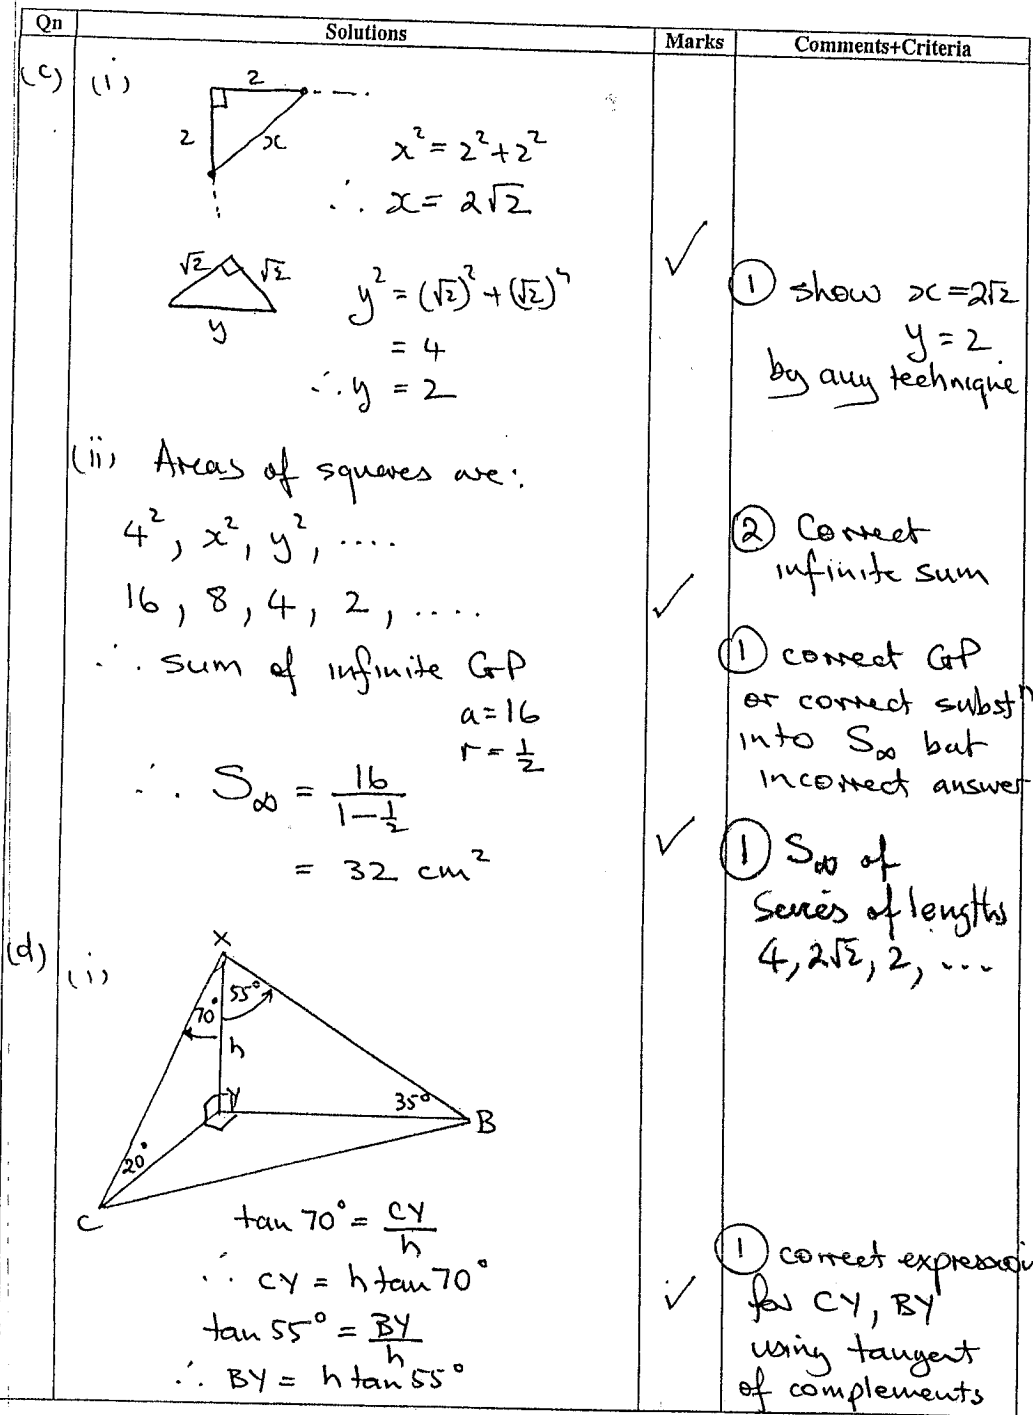 Qn Solutions Marks Comments+Criteria
(c) (i)
2
2 x
x² = 2² + 2²
∴ x = 2√2
✓
√2 √2
y
y² = (√2)² + (√2)²
= 4
∴ y = 2
① show x = 2√2
y = 2
by any technique
(ii) Areas of squares are:
4², x², y², ....
16, 8, 4, 2, ....
✓
② Correct
infinite sum
∴ sum of infinite GP
a = 16
r = 1/2
① correct GP
or correct substⁿ
into S∞ but
incorrect answer
∴ S∞ = 16/(1 − 1/2)
= 32 cm²
✓
① S∞ of
series of lengths
4, 2√2, 2, ...
(d) (i)
X
70° 55°
h
Y
35° B
20°
C
tan 70° = CY/h
∴ CY = h tan 70°
tan 55° = BY/h
∴ BY = h tan 55°
✓
① correct expressio
for CY, BY
using tangent
of complements